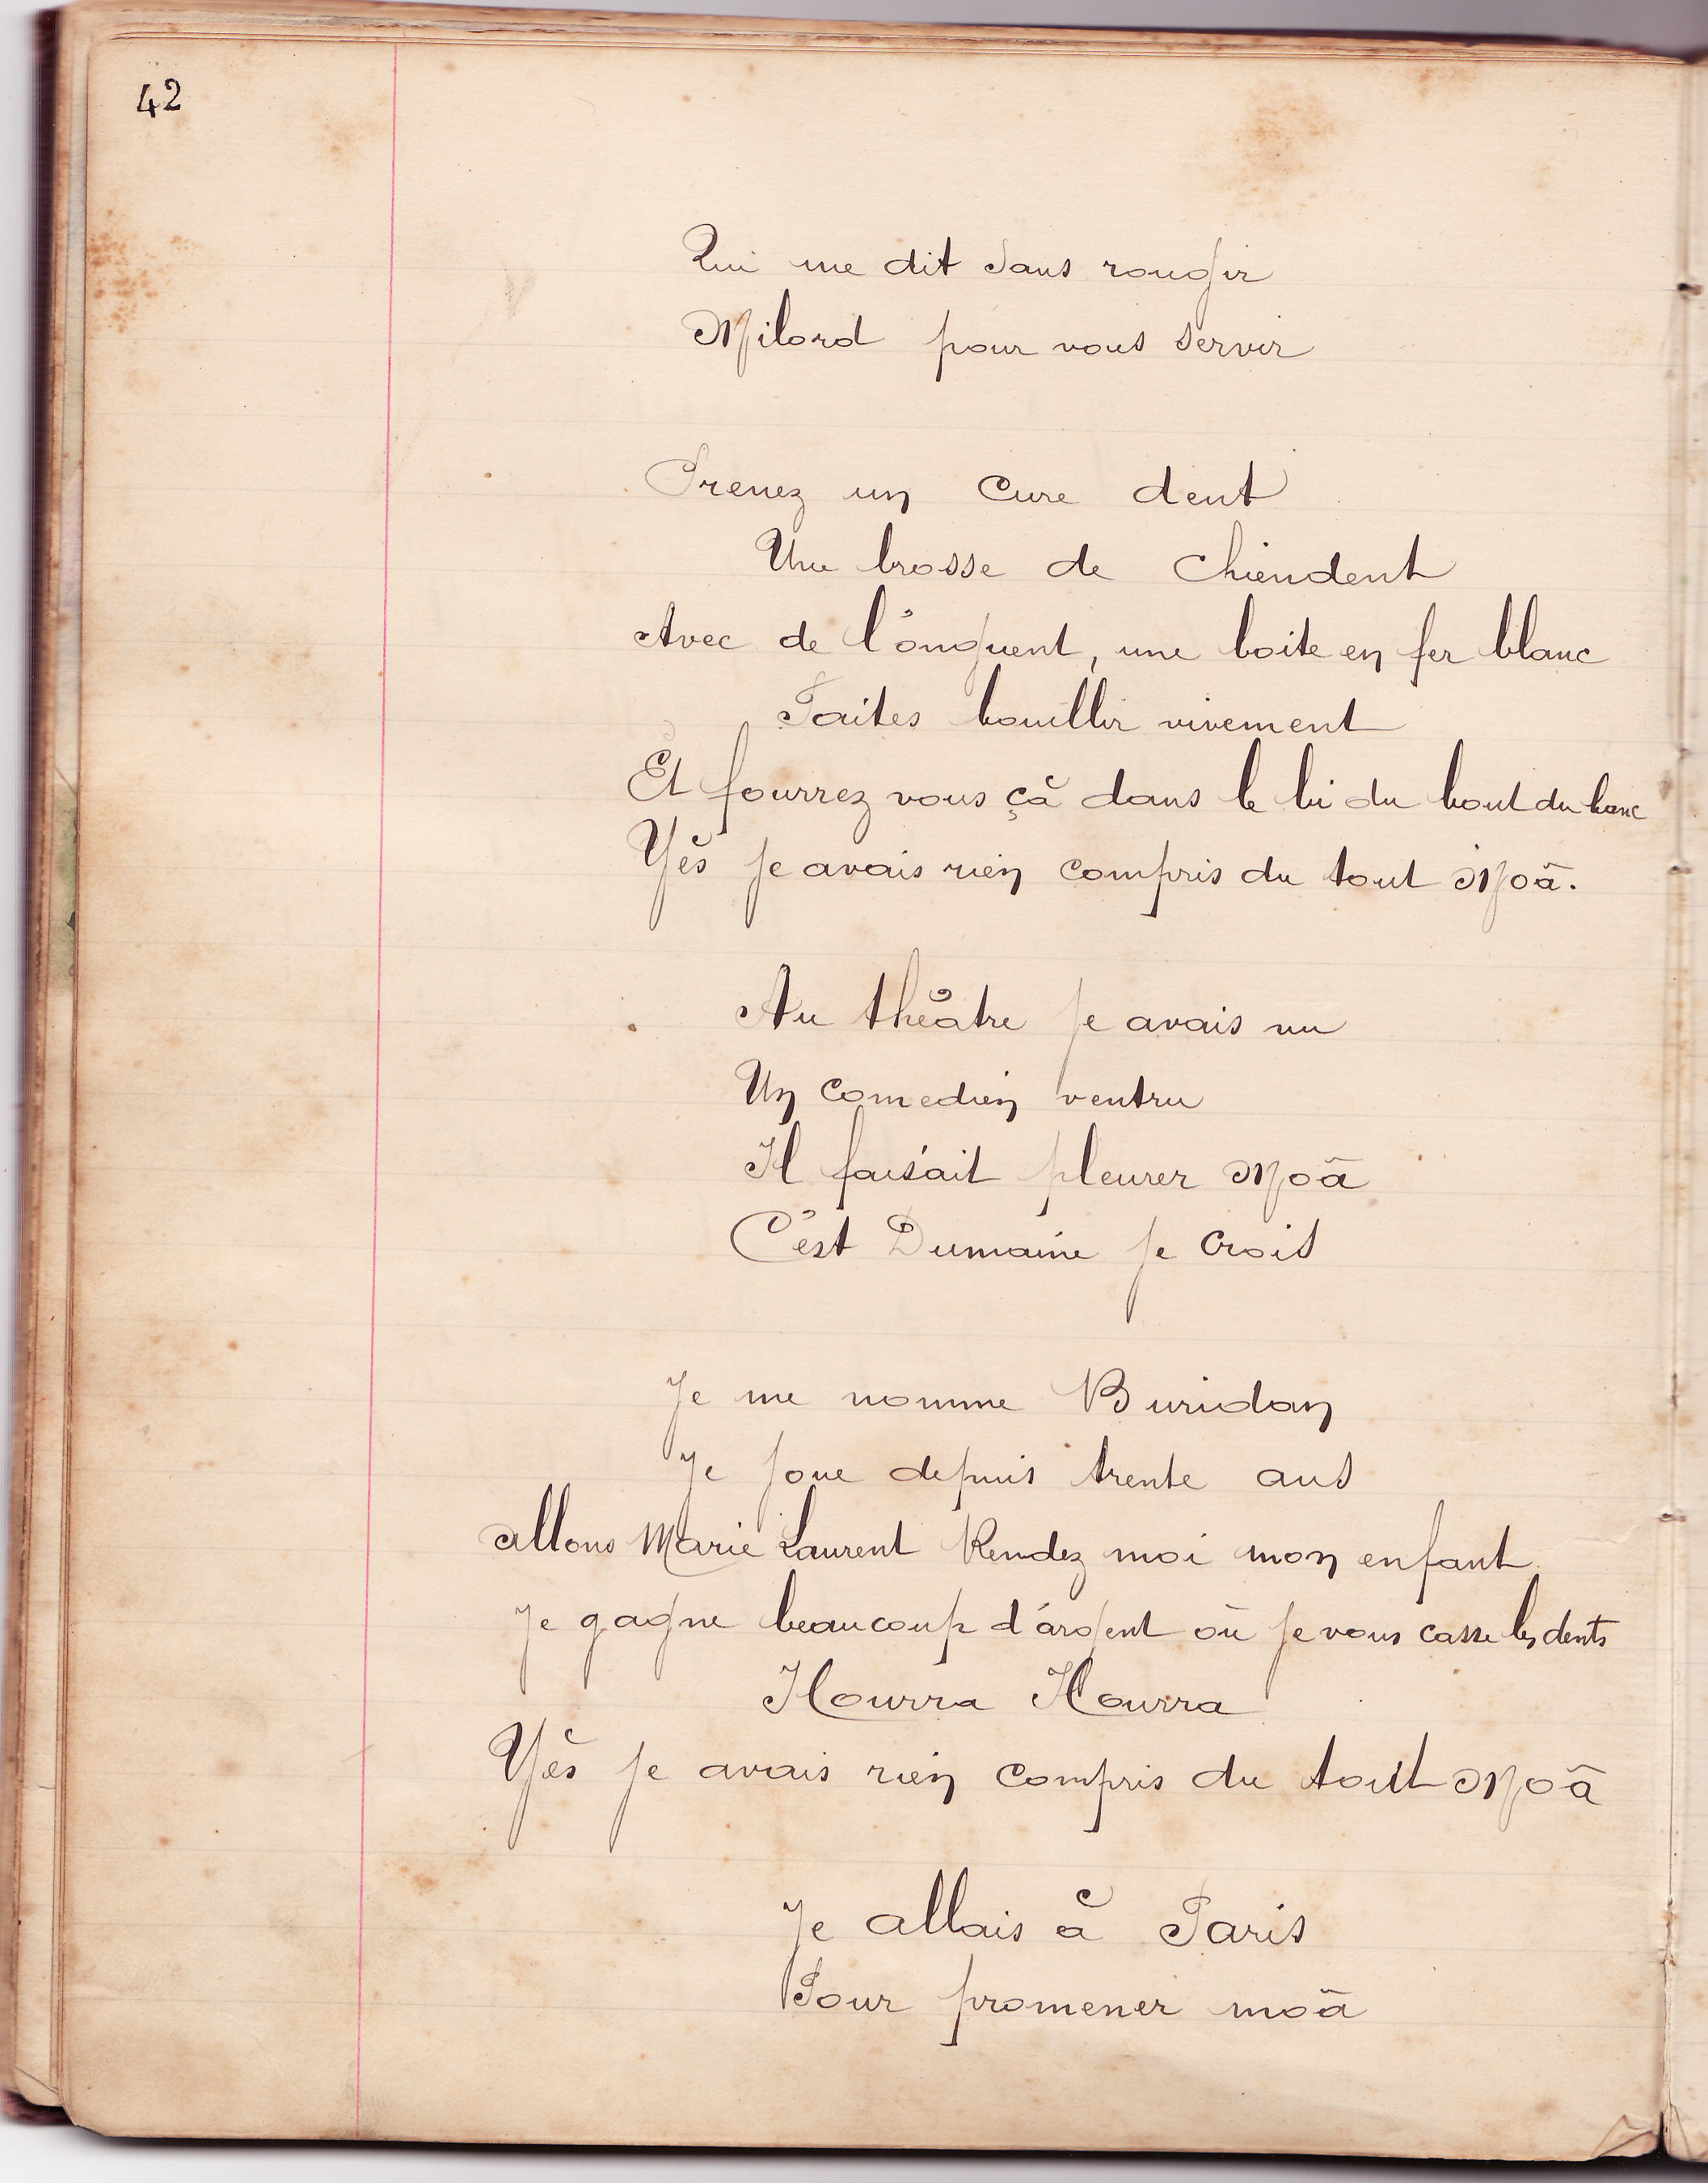 42
Qui me dit sans rougir
Milord pour vous servir
Prenez un cure dent
Une brosse de chiendent
Avec de l'onguent, une boite en fer blanc
Faites bouillir vivement
Et fourrez vous çà dans le bi du bout du banc
Yès je avais rien compris du tout Moâ.
Au théâtre je avais vu
Un comedien ventru
Il faisait pleurer Moâ
C'est Dumaine je crois
Je me nomme Buridan
Je joue depuis trente ans
allons Marie Laurent Rendez moi mon enfant
Je gagne beaucoup d'argent où je vous casse les dents
Hourra Hourra
Yès je avais rien compris du tout Moâ
Je allais à Paris
Pour promener moâ